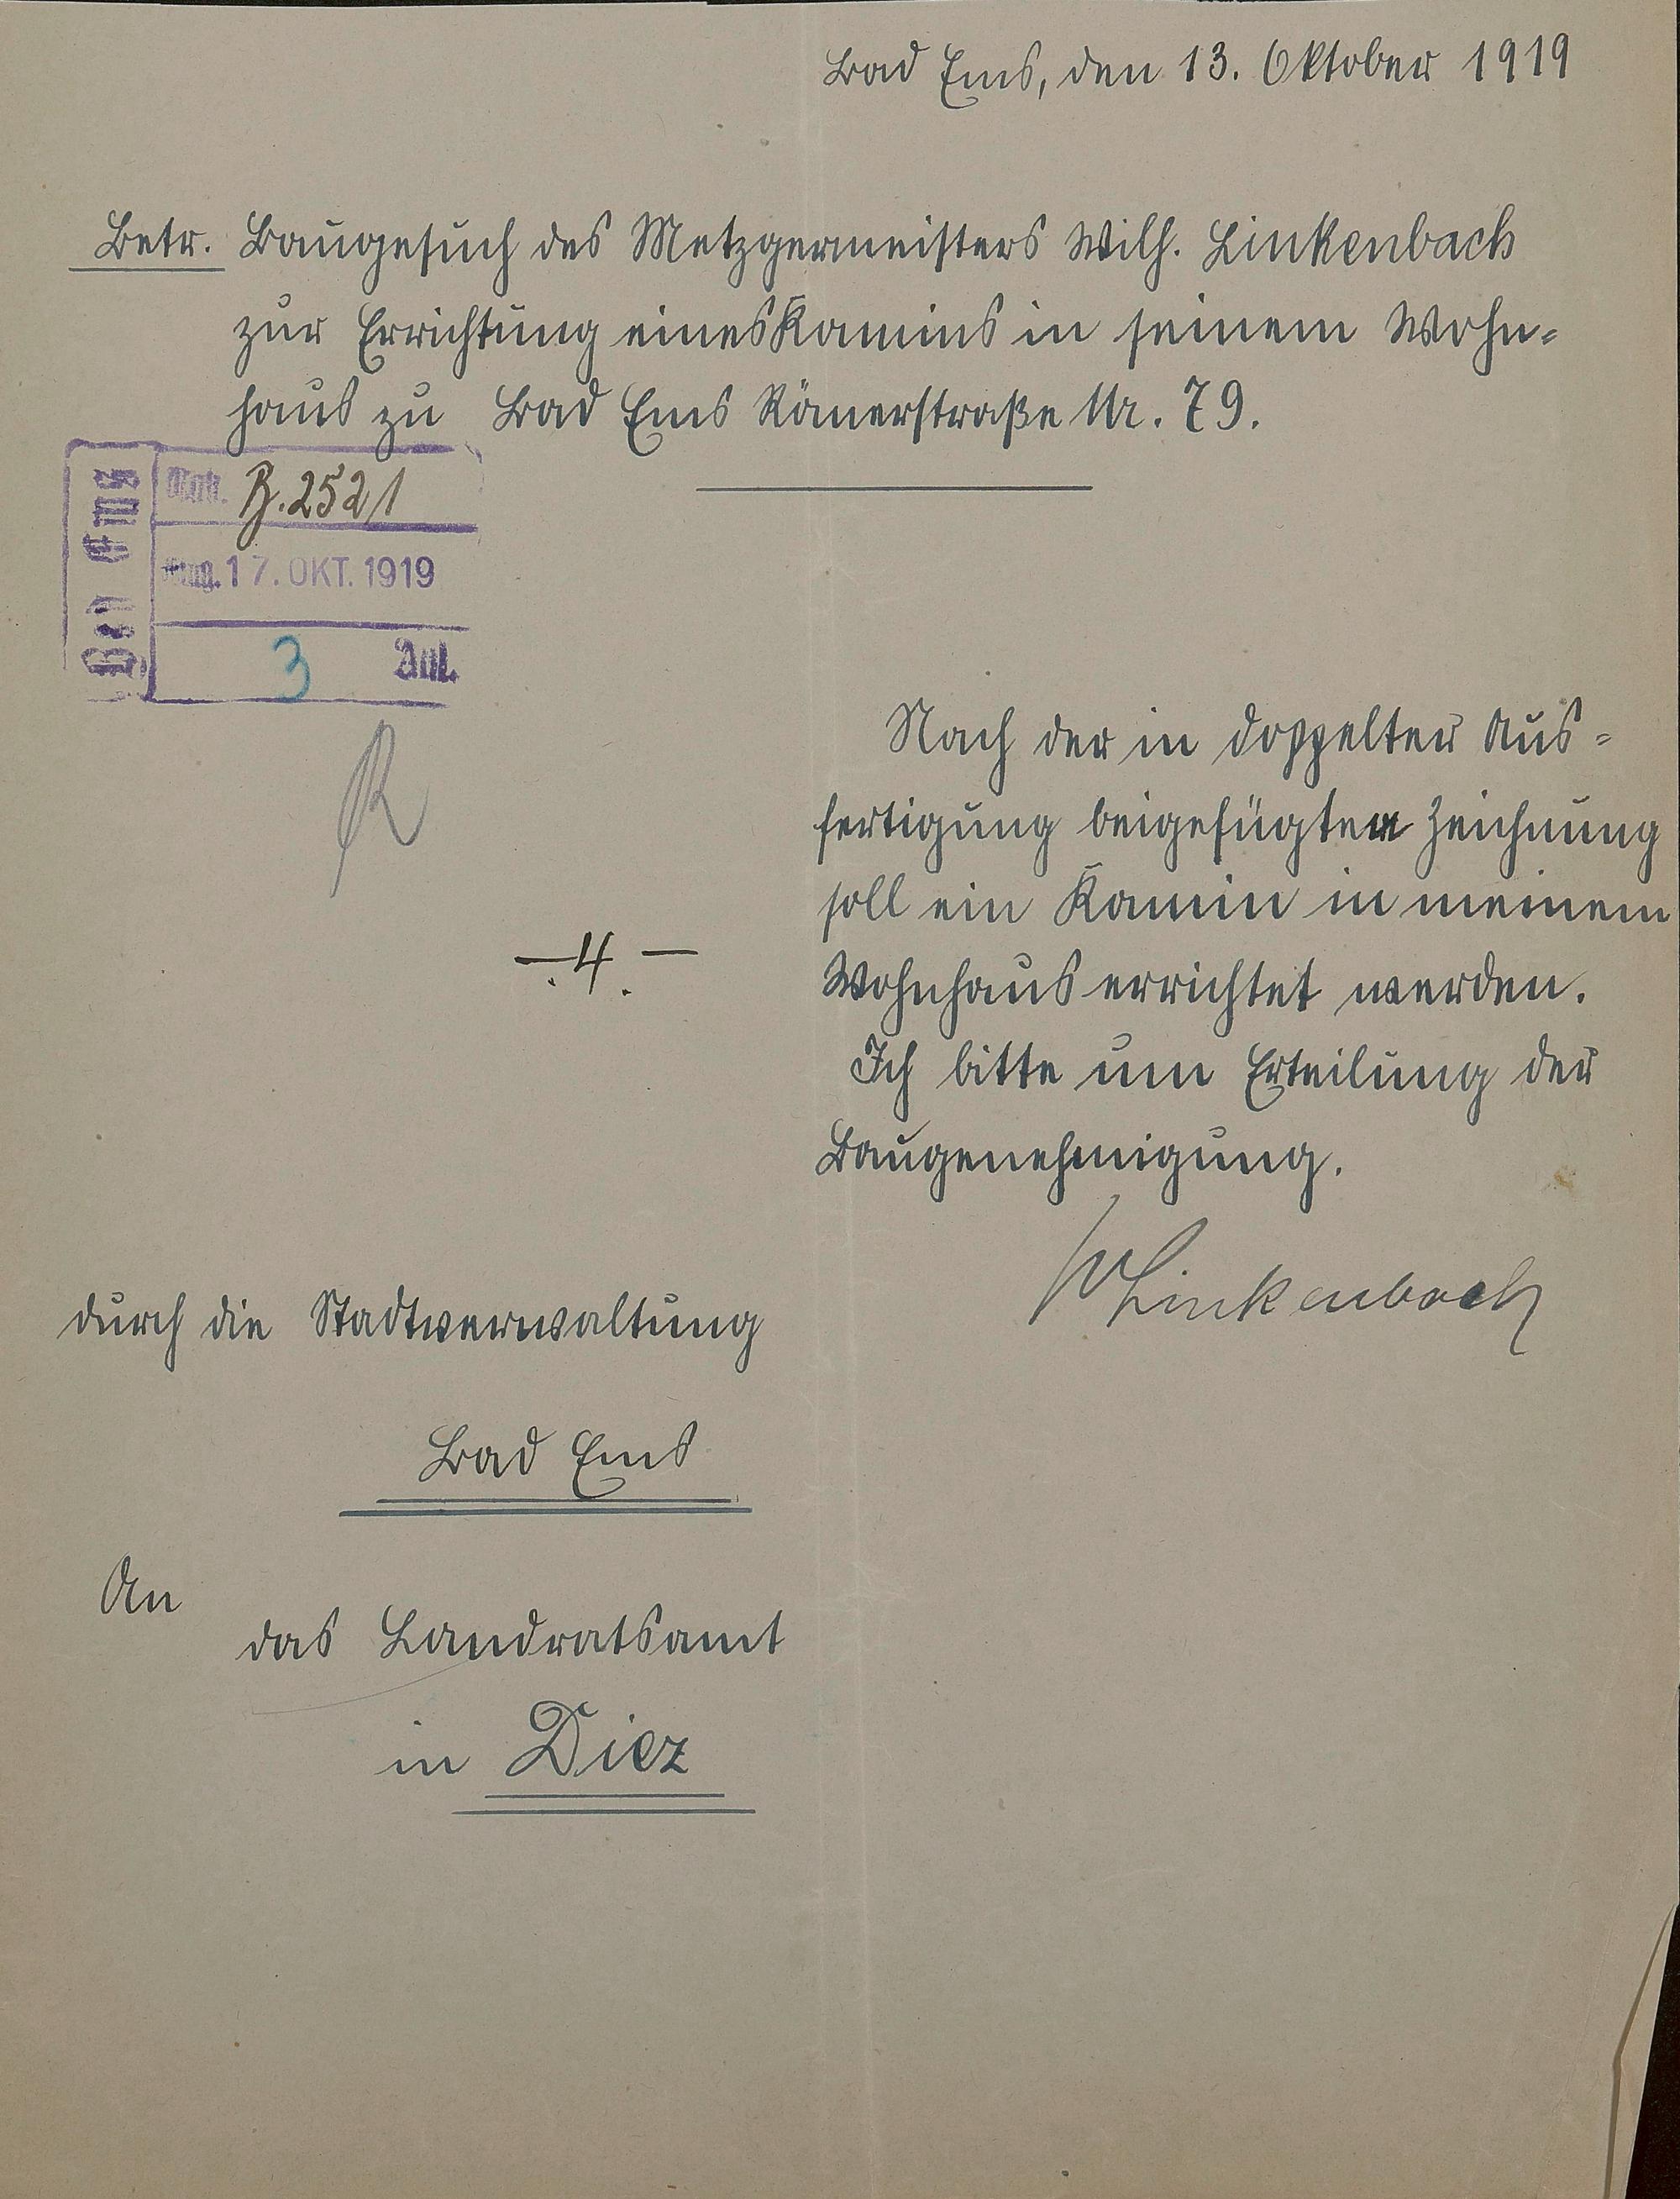 Bad Ems, den 13. Oktober 1919
Betr. Baugesuch des Metzgermeisters Wilh. Linkenbach
zur Errichtung eines Kamins in seinem Wohn-
haus zu Bad Ems Römerstraße Nr. 79.
Bad Ems
B. 2521
Eing. 17. OKT. 1919
3 Anl.
R
Nach der in doppelter Aus-
fertigung beigefügten Zeichnung
soll ein Kamin in meinem
Wohnhaus errichtet werden.
- 4. -
Ich bitte um Erteilung der
Baugenehmigung.
W Linkenbach
durch die Stadtverwaltung
Bad Ems
An
das Landratsamt
in Diez